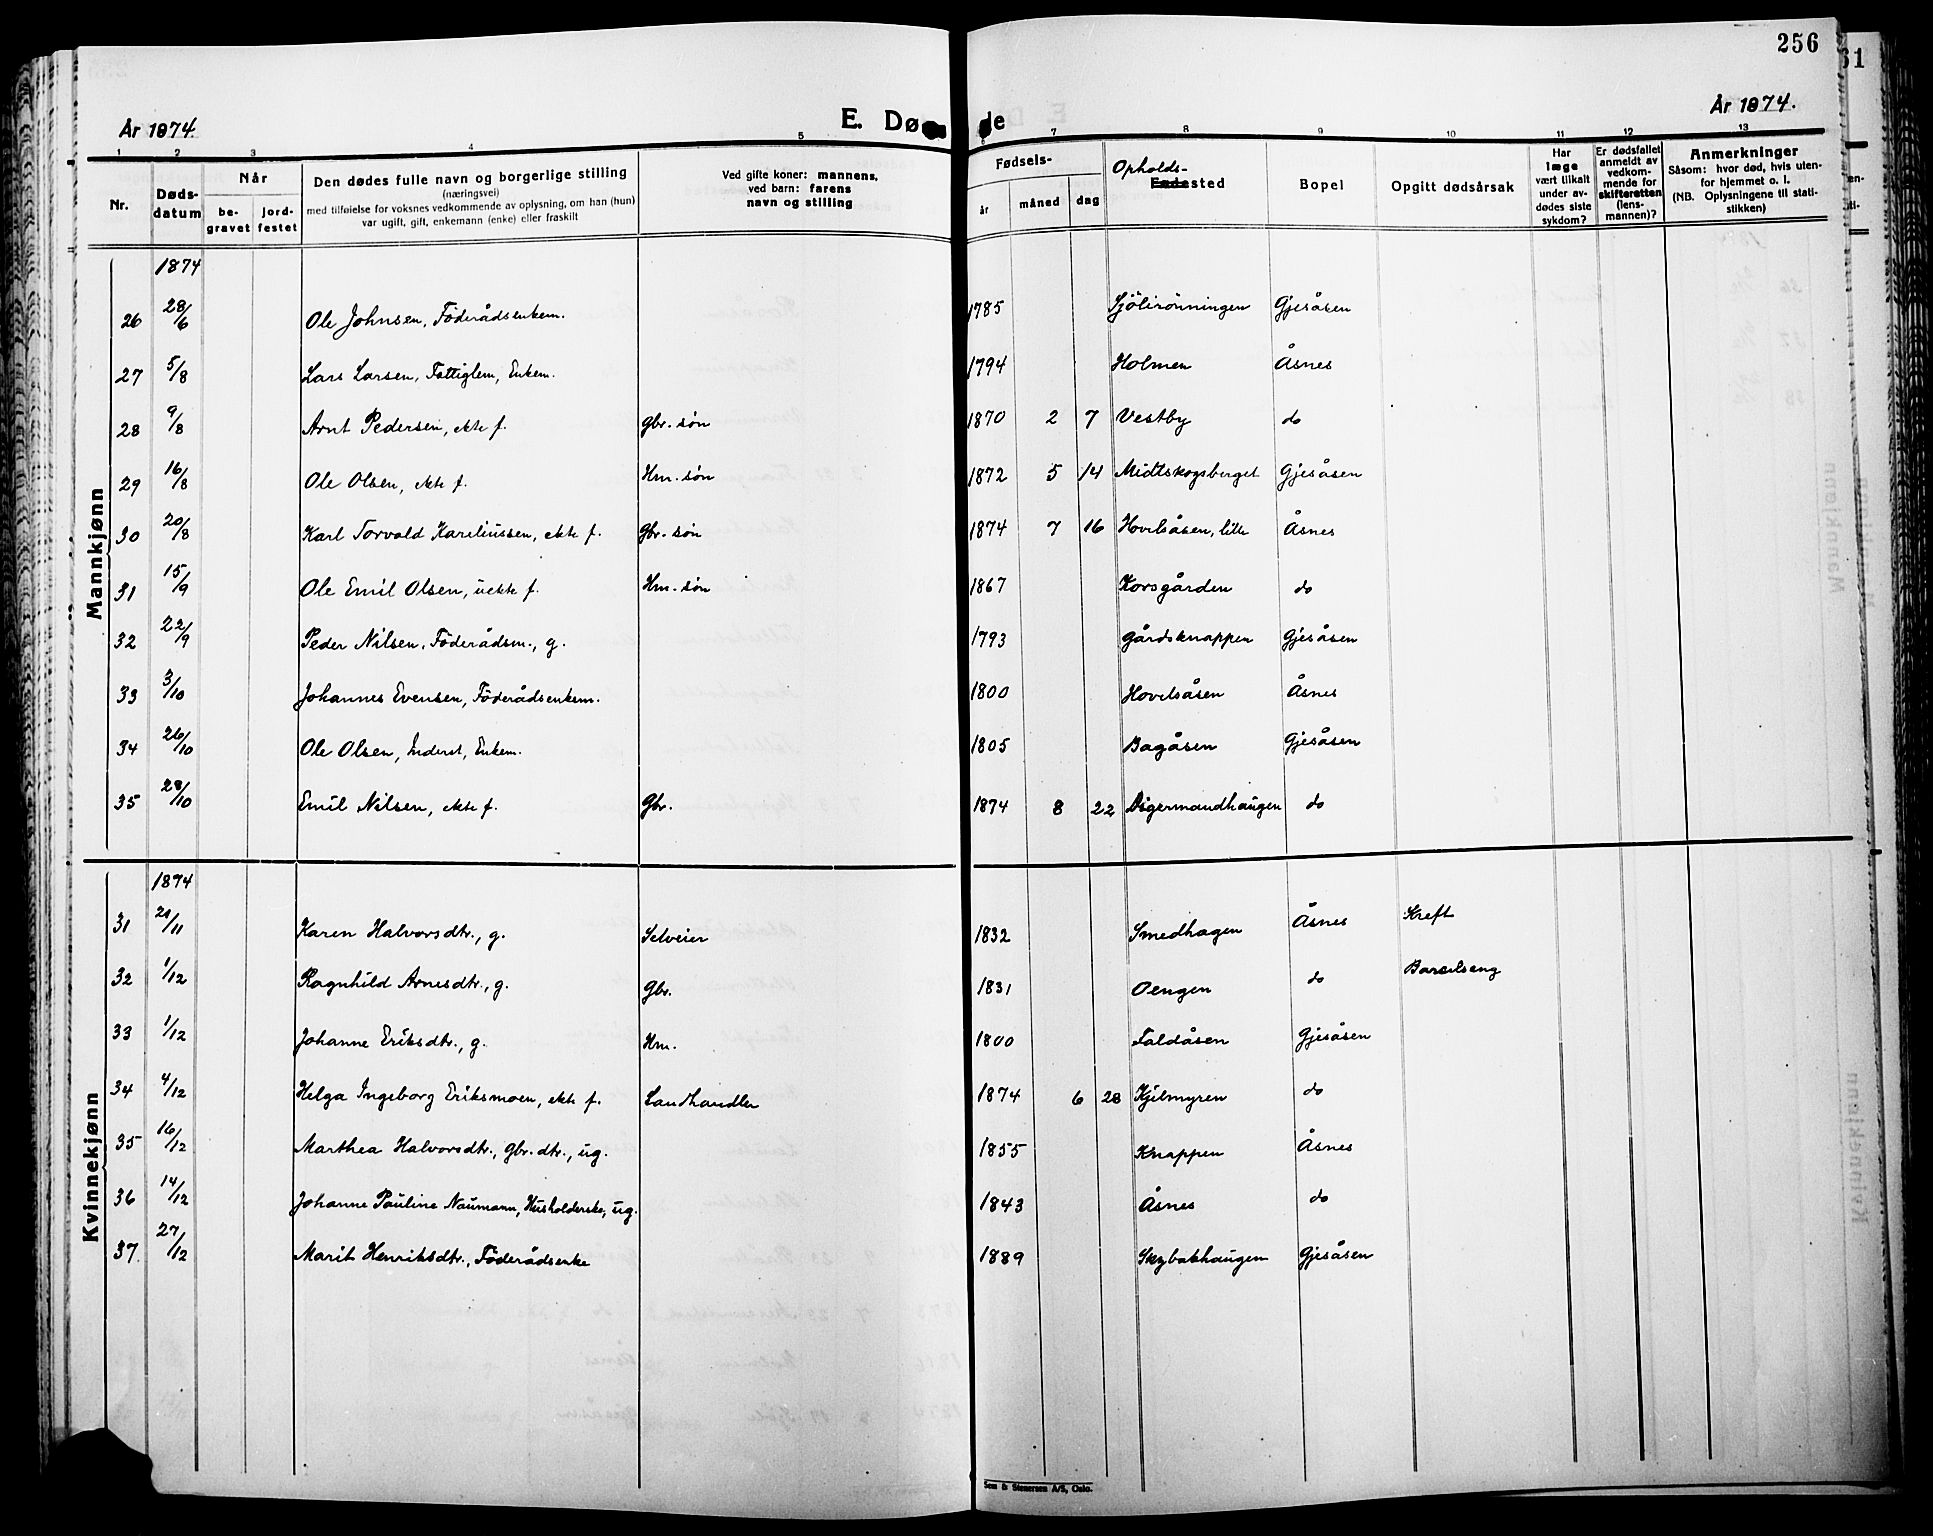 256
61
År 1874.
E. Dø de
År 1874.
1 2 3 4 5 6 7 8 9 10 11 12 13
Nr.
Dødsdatum
Når
begravet
jordfestet
Den dødes fulle navn og borgerlige stilling
(næringsvei)
med tilføielse for voksnes vedkommende av oplysning, om han (hun)
var ugift, gift, enkemann (enke) eller fraskilt
Ved gifte koner: mannens,
ved barn: farens
navn og stilling
Fødsels-
år måned dag
Opholds-
sted
Bopel
Opgitt dødsårsak
Har
læge
vært tilkalt
under av-
dødes siste
sykdom?
Er dødsfallet
anmeldt av
vedkom-
mende for
skifteretten
(lens-
mannen)?
Anmerkninger
Såsom: hvor død, hvis uten-
for hjemmet o. l.
(NB. Oplysningene til stati-
stikken)
Mannkjønn
1874
26 28/6 Ole Johnsen, Föderådsenkem. 1785 Sjölirönningen Gjesåsen
27 5/8 Lars Larsen, Fattiglem, Enkem. 1794 Holmen Åsnes
28 9/8 Arnt Pedersen, ekte f. Gbr. søn 1870 2 7 Vestby do
29 16/8 Ole Olsen, ekte f. Hm. søn 1872 5 14 Midtskogsberget Gjesåsen
30 20/8 Karl Torvald Kareliussen, ekte f. Gbr. søn 1874 7 16 Hovelsåsen, lille Åsnes
31 15/9 Ole Emil Olsen, uekte f. Hm. søn 1867 Korsgården do
32 22/9 Peder Nilsen, Föderådsm., g. 1793 Gårdsknappen Gjesåsen
33 3/10 Johannes Evensen, Föderådsenkem. 1800 Hovelsåsen Åsnes
34 26/10 Ole Olsen, Inderst, Enkem. 1805 Bagåsen Gjesåsen
35 28/10 Emil Nilsen, ekte f. Gbr. 1874 8 22 Digermandhaugen do
Kvinnekjønn
1874
31 21/11 Karen Halvorsdtr., g. Selveier 1832 Smedhagen Åsnes Kreft
32 1/12 Ragnhild Arnesdtr., g. Gbr. 1831 Oengen do Barselseng
33 1/12 Johanne Eriksdtr., g. Hm. 1800 Faldåsen Gjesåsen
34 4/12 Helga Ingeborg Eriksmoen, ekte f. Landhandler 1874 6 28 Kjelmyren do
35 16/12 Marthea Halvorsdtr., Gbr. dtr., ug. 1855 Knappen Åsnes
36 14/12 Johanne Pauline Naumann, Husholderske, ug. 1843 Åsnes do
37 27/12 Marit Henriksdtr., Föderådsenke 1889 Skybakhaugen Gjesåsen
Sem & Stenersen A/S, Oslo.